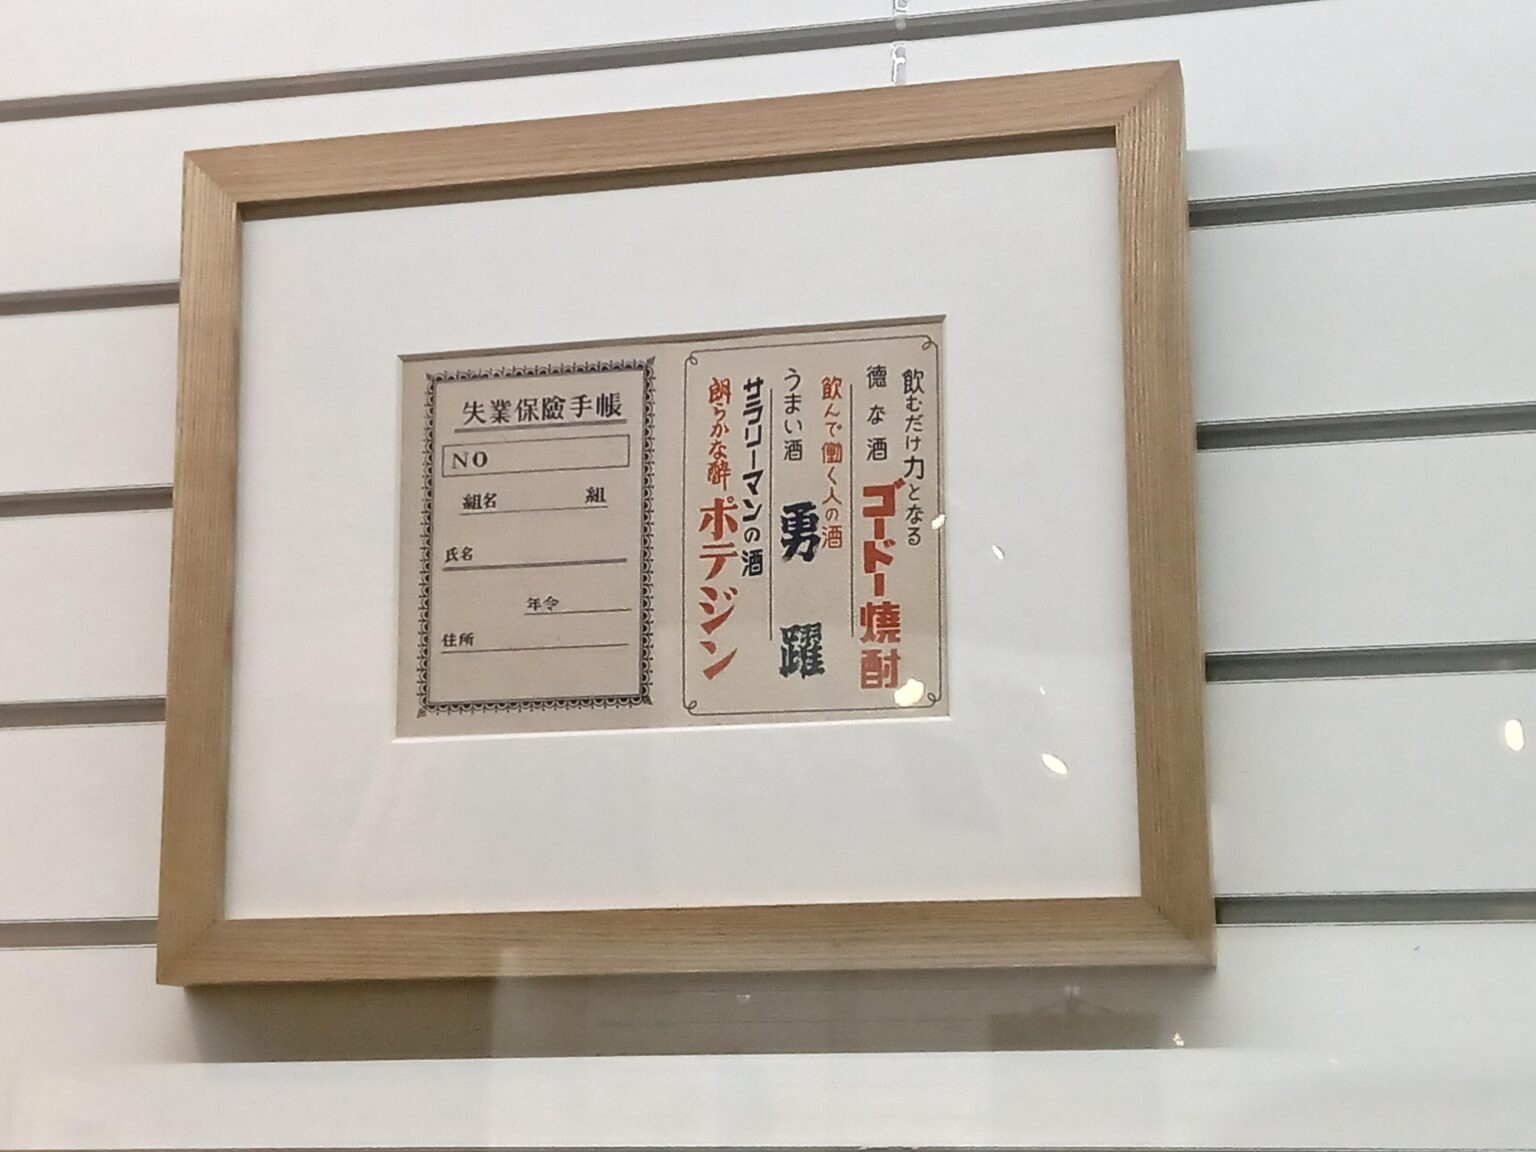 失業保險手帳
NO
組名 組
氏名
年令
住所
飲むだけ力となる
德な酒
ゴードー焼酎
飲んで働く人の酒
うまい酒
勇躍
サラリーマンの酒
朗らかな酔
ポテジン